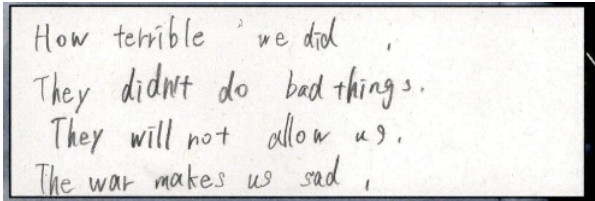 How terrible we did,
They didn't do bad things.
They will not allow us.
The war makes us sad,